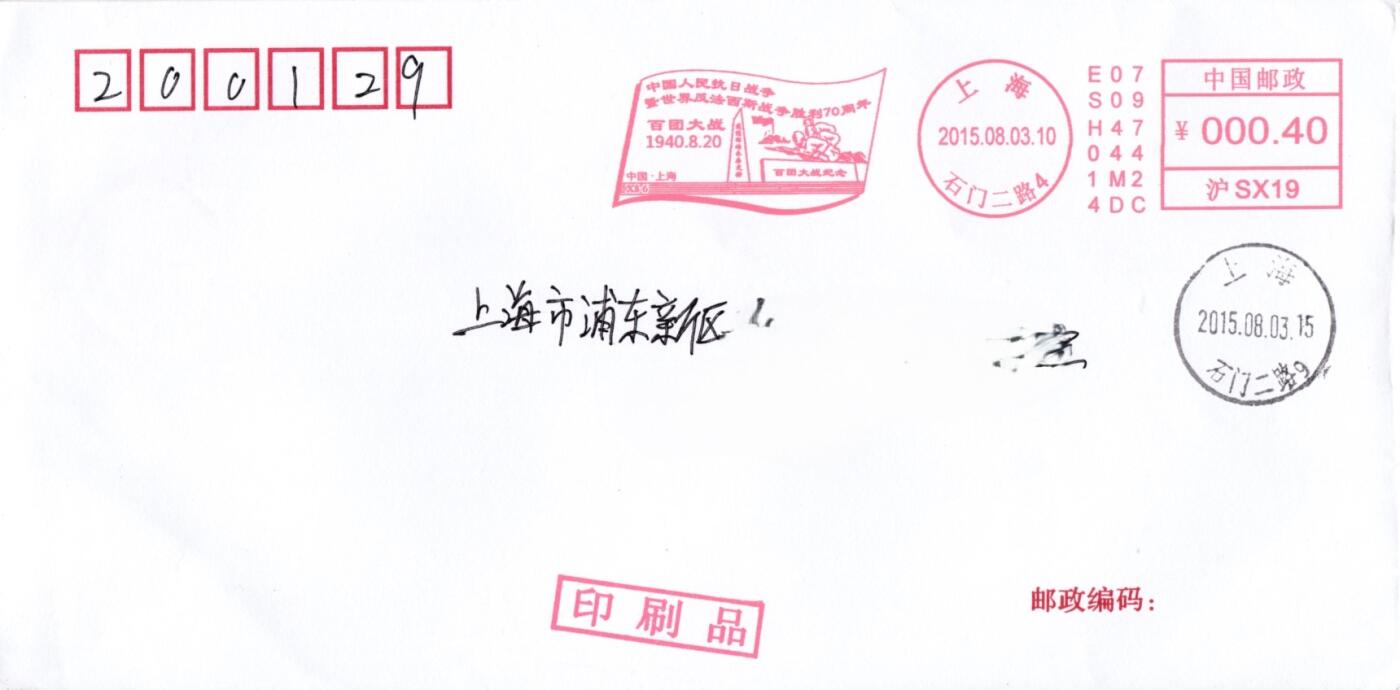 200129
中国人民抗日战争
暨世界反法西斯战争胜利70周年
百团大战
1940.8.20
百团大战纪念
中国·上海
上海
2015.08.03.10
石门二路4
E07
S09
H47
044
1M2
4DC
中国邮政
¥ 000.40
沪SX19
上海市浦东新区
上海
2015.08.03.15
石门二路9
印刷品
邮政编码：